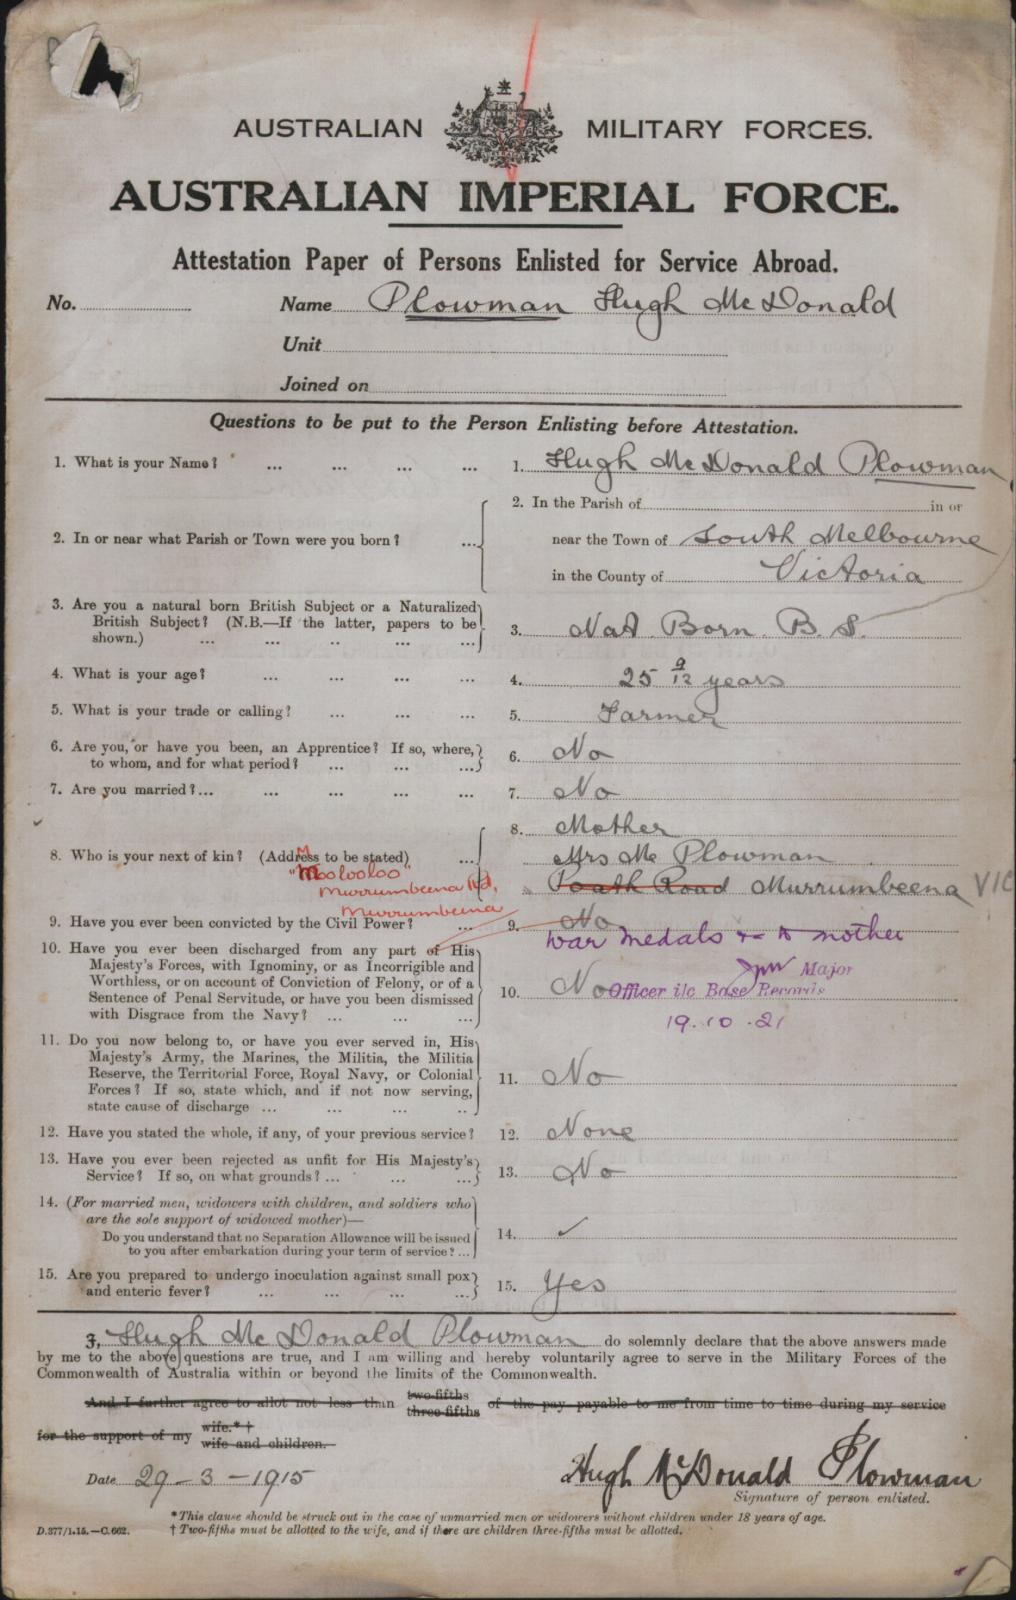 AUSTRALIAN MILITARY FORCES.
AUSTRALIAN IMPERIAL FORCE.
Attestation Paper of Persons Enlisted for Service Abroad.
No. Name Plowman Hugh McDonald
Unit
Joined on
Questions to be put to the Person Enlisting before Attestation.
1. What is your Name? ... ... ... ... 1. Hugh McDonald Plowman
2. In or near what Parish or Town were you born? ... 2. In the Parish of in or
near the Town of South Melbourne
in the County of Victoria
3. Are you a natural born British Subject or a Naturalized
British Subject? (N.B.—If the latter, papers to be
shown.) ... ... .. ... ... 3. Nat. Born. B.S.
4. What is your age? ... ... ... ... 4. 25 9/12 years
5. What is your trade or calling? ... ... ... 5. Farmer
6. Are you, or have you been, an Apprentice? If so, where,
to whom, and for what period? ... ... ... 6. No
7. Are you married?... ... ... ... ... 7. No
8. Who is your next of kin? (Address to be stated) ... 8. Mother
Mrs Mc Plowman
Road Murrumbeena VIC
Murrumbeena Rd,
Murrumbeena
9. Have you ever been convicted by the Civil Power? ... 9. No
War Medals to mother
10. Have you ever been discharged from any part of His
Majesty's Forces, with Ignominy, or as Incorrigible and
Worthless, or on account of Conviction of Felony, or of a
Sentence of Penal Servitude, or have you been dismissed
with Disgrace from the Navy? ... ... ... 10. No
Major
Officer i/c Base Records
19.10.21
11. Do you now belong to, or have you ever served in, His
Majesty's Army, the Marines, the Militia, the Militia
Reserve, the Territorial Force, Royal Navy, or Colonial
Forces? If so, state which, and if not now serving,
state cause of discharge ... ... ... .. 11. No
12. Have you stated the whole, if any, of your previous service? 12. None
13. Have you ever been rejected as unfit for His Majesty's
Service? If so, on what grounds? ... ... ... 13. No
14. (For married men, widowers with children, and soldiers who
are the sole support of widowed mother)—
Do you understand that no Separation Allowance will be issued
to you after embarkation during your term of service? ... 14. ✓
15. Are you prepared to undergo inoculation against small pox
and enteric fever? ... ... ... ... 15. Yes
I, Hugh McDonald Plowman do solemnly declare that the above answers made
by me to the above questions are true, and I am willing and hereby voluntarily agree to serve in the Military Forces of the
Commonwealth of Australia within or beyond the limits of the Commonwealth.
And I further agree to allot not less than two-fifths three-fifths of the pay payable to me from time to time during my service
for the support of my wife.*† wife and children.
Date 29-3-1915 Hugh McDonald Plowman
Signature of person enlisted.
*This clause should be struck out in the case of unmarried men or widowers without children under 18 years of age.
D.377/1.15.—C.662. † Two-fifths must be allotted to the wife, and if there are children three-fifths must be allotted.